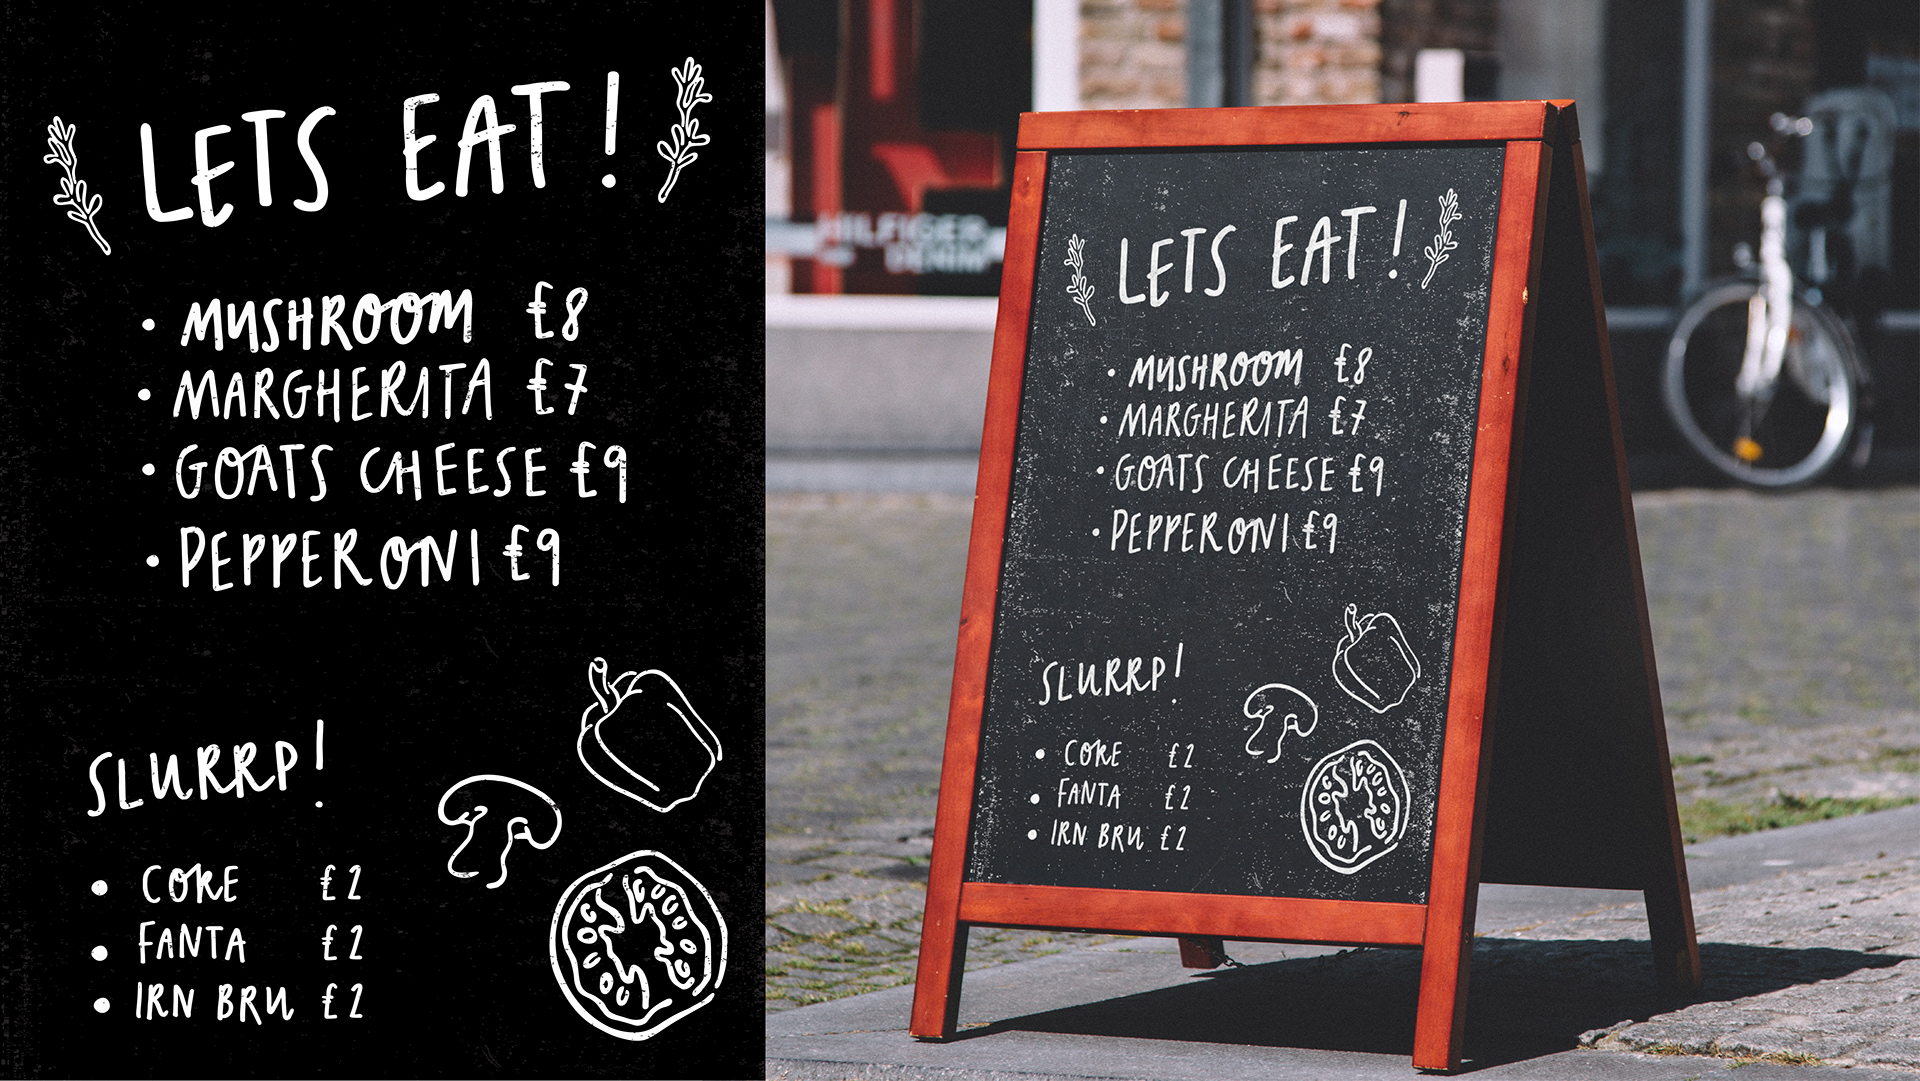 LETS EAT!
• MUSHROOM £8
• MARGHERITA £7
• GOATS CHEESE £9
• PEPPERONI £9
SLURRP!
• COKE £2
• FANTA £2
• IRN BRU £2
HILFIGER
DENIM
LETS EAT!
• MUSHROOM £8
• MARGHERITA £7
• GOATS CHEESE £9
• PEPPERONI £9
SLURRP!
• COKE £2
• FANTA £2
• IRN BRU £2